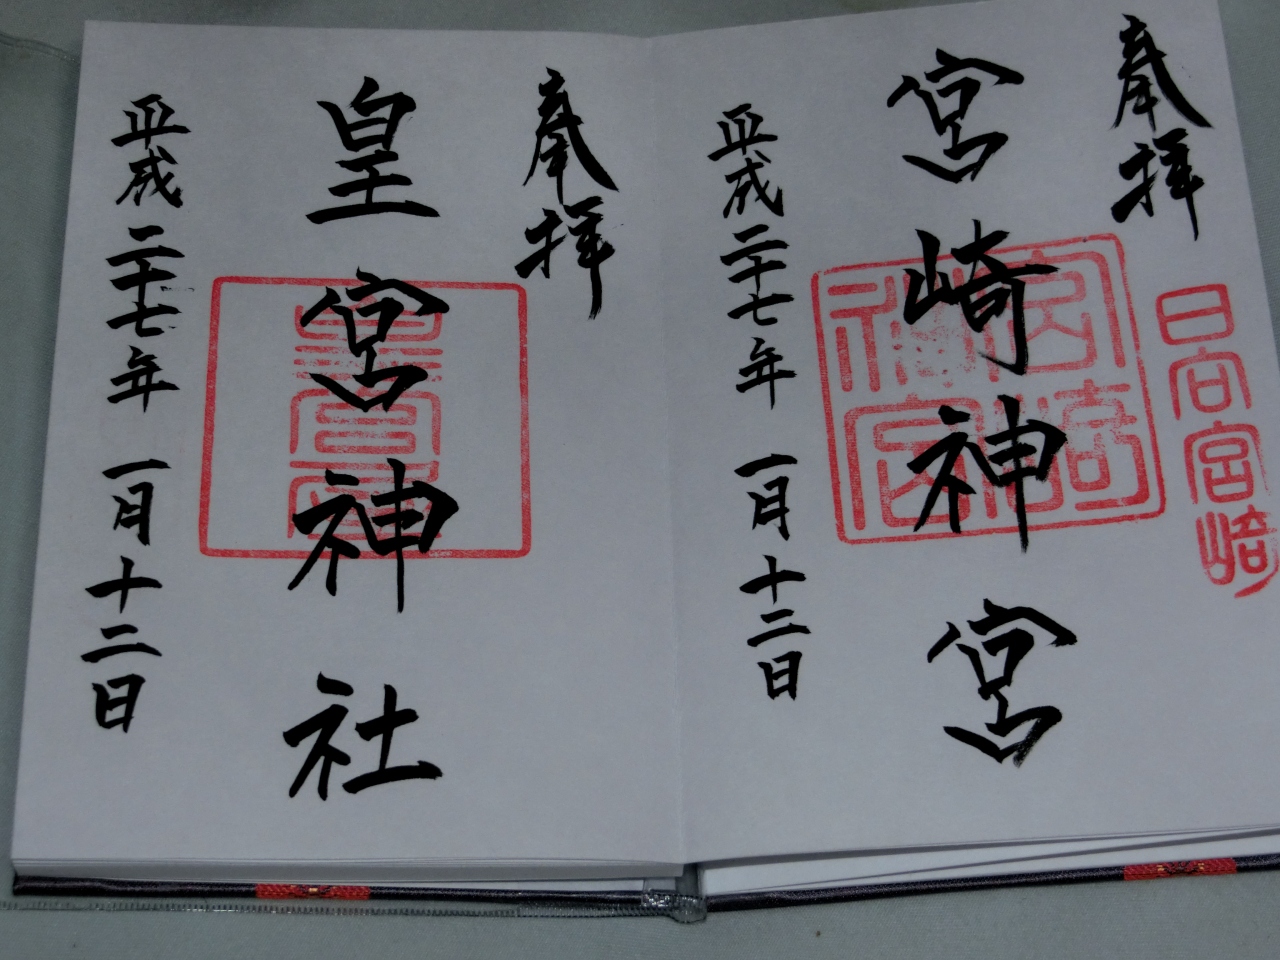 奉拝
日向宮崎
宮崎神宮
宮崎神宮
平成二十七年 一月十二日
奉拝
皇宮神社
皇宮
平成二十七年 一月十二日